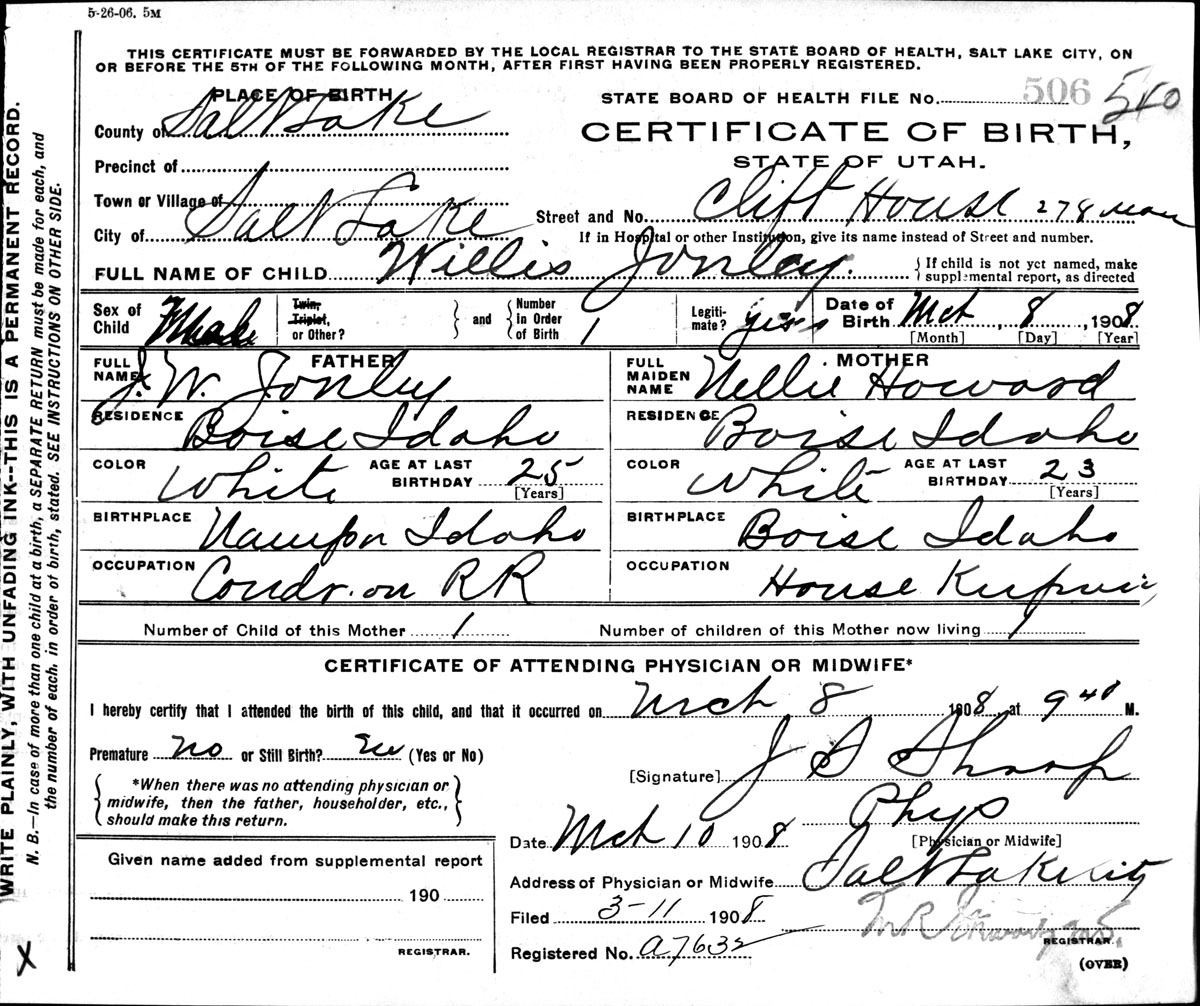 5-26-06. 5M
THIS CERTIFICATE MUST BE FORWARDED BY THE LOCAL REGISTRAR TO THE STATE BOARD OF HEALTH, SALT LAKE CITY, ON
OR BEFORE THE 5TH OF THE FOLLOWING MONTH, AFTER FIRST HAVING BEEN PROPERLY REGISTERED.
PLACE OF BIRTH
STATE BOARD OF HEALTH FILE No. 506 540
County of Salt Lake
CERTIFICATE OF BIRTH,
STATE OF UTAH.
Precinct of
Town or Village of
Street and No. Clift House 278
City of Salt Lake
If in Hospital or other Institution, give its name instead of Street and number.
FULL NAME OF CHILD Willis Jonley.
{ If child is not yet named, make
supplemental report, as directed
Sex of Child Male
Twin, Triplet, or Other?
and
Number in Order of Birth 1
Legiti-mate? yes
Date of Birth Mch 8, 1908
[Month] [Day] [Year]
FATHER
FULL NAME J. W. Jonley
RESIDENCE Boise Idaho
COLOR White AGE AT LAST BIRTHDAY 25
[Years]
BIRTHPLACE Nampa Idaho
OCCUPATION Condr. on RR
MOTHER
FULL MAIDEN NAME Nellie Howard
RESIDENCE Boise Idaho
COLOR White AGE AT LAST BIRTHDAY 23
[Years]
BIRTHPLACE Boise Idaho
OCCUPATION House
Number of Child of this Mother 1 Number of children of this Mother now living 1
CERTIFICATE OF ATTENDING PHYSICIAN OR MIDWIFE*
I hereby certify that I attended the birth of this child, and that it occurred on Mch 8 1908, at 9 40 M.
Premature no or Still Birth? (Yes or No)
[Signature] J S Sharp
*When there was no attending physician or
midwife, then the father, householder, etc.,
should make this return.
Phys
Date Mch 10 1908
[Physician or Midwife]
Given name added from supplemental report
190
REGISTRAR.
Address of Physician or Midwife Salt Lake City
Filed 3-11 1908
REGISTRAR.
Registered No. a7632
(OVER)
WRITE PLAINLY, WITH UNFADING INK--THIS IS A PERMANENT RECORD.
N. B.—In case of more than one child at a birth, a SEPARATE RETURN must be made for each, and
the number of each, in order of birth, stated. SEE INSTRUCTIONS ON OTHER SIDE.
X